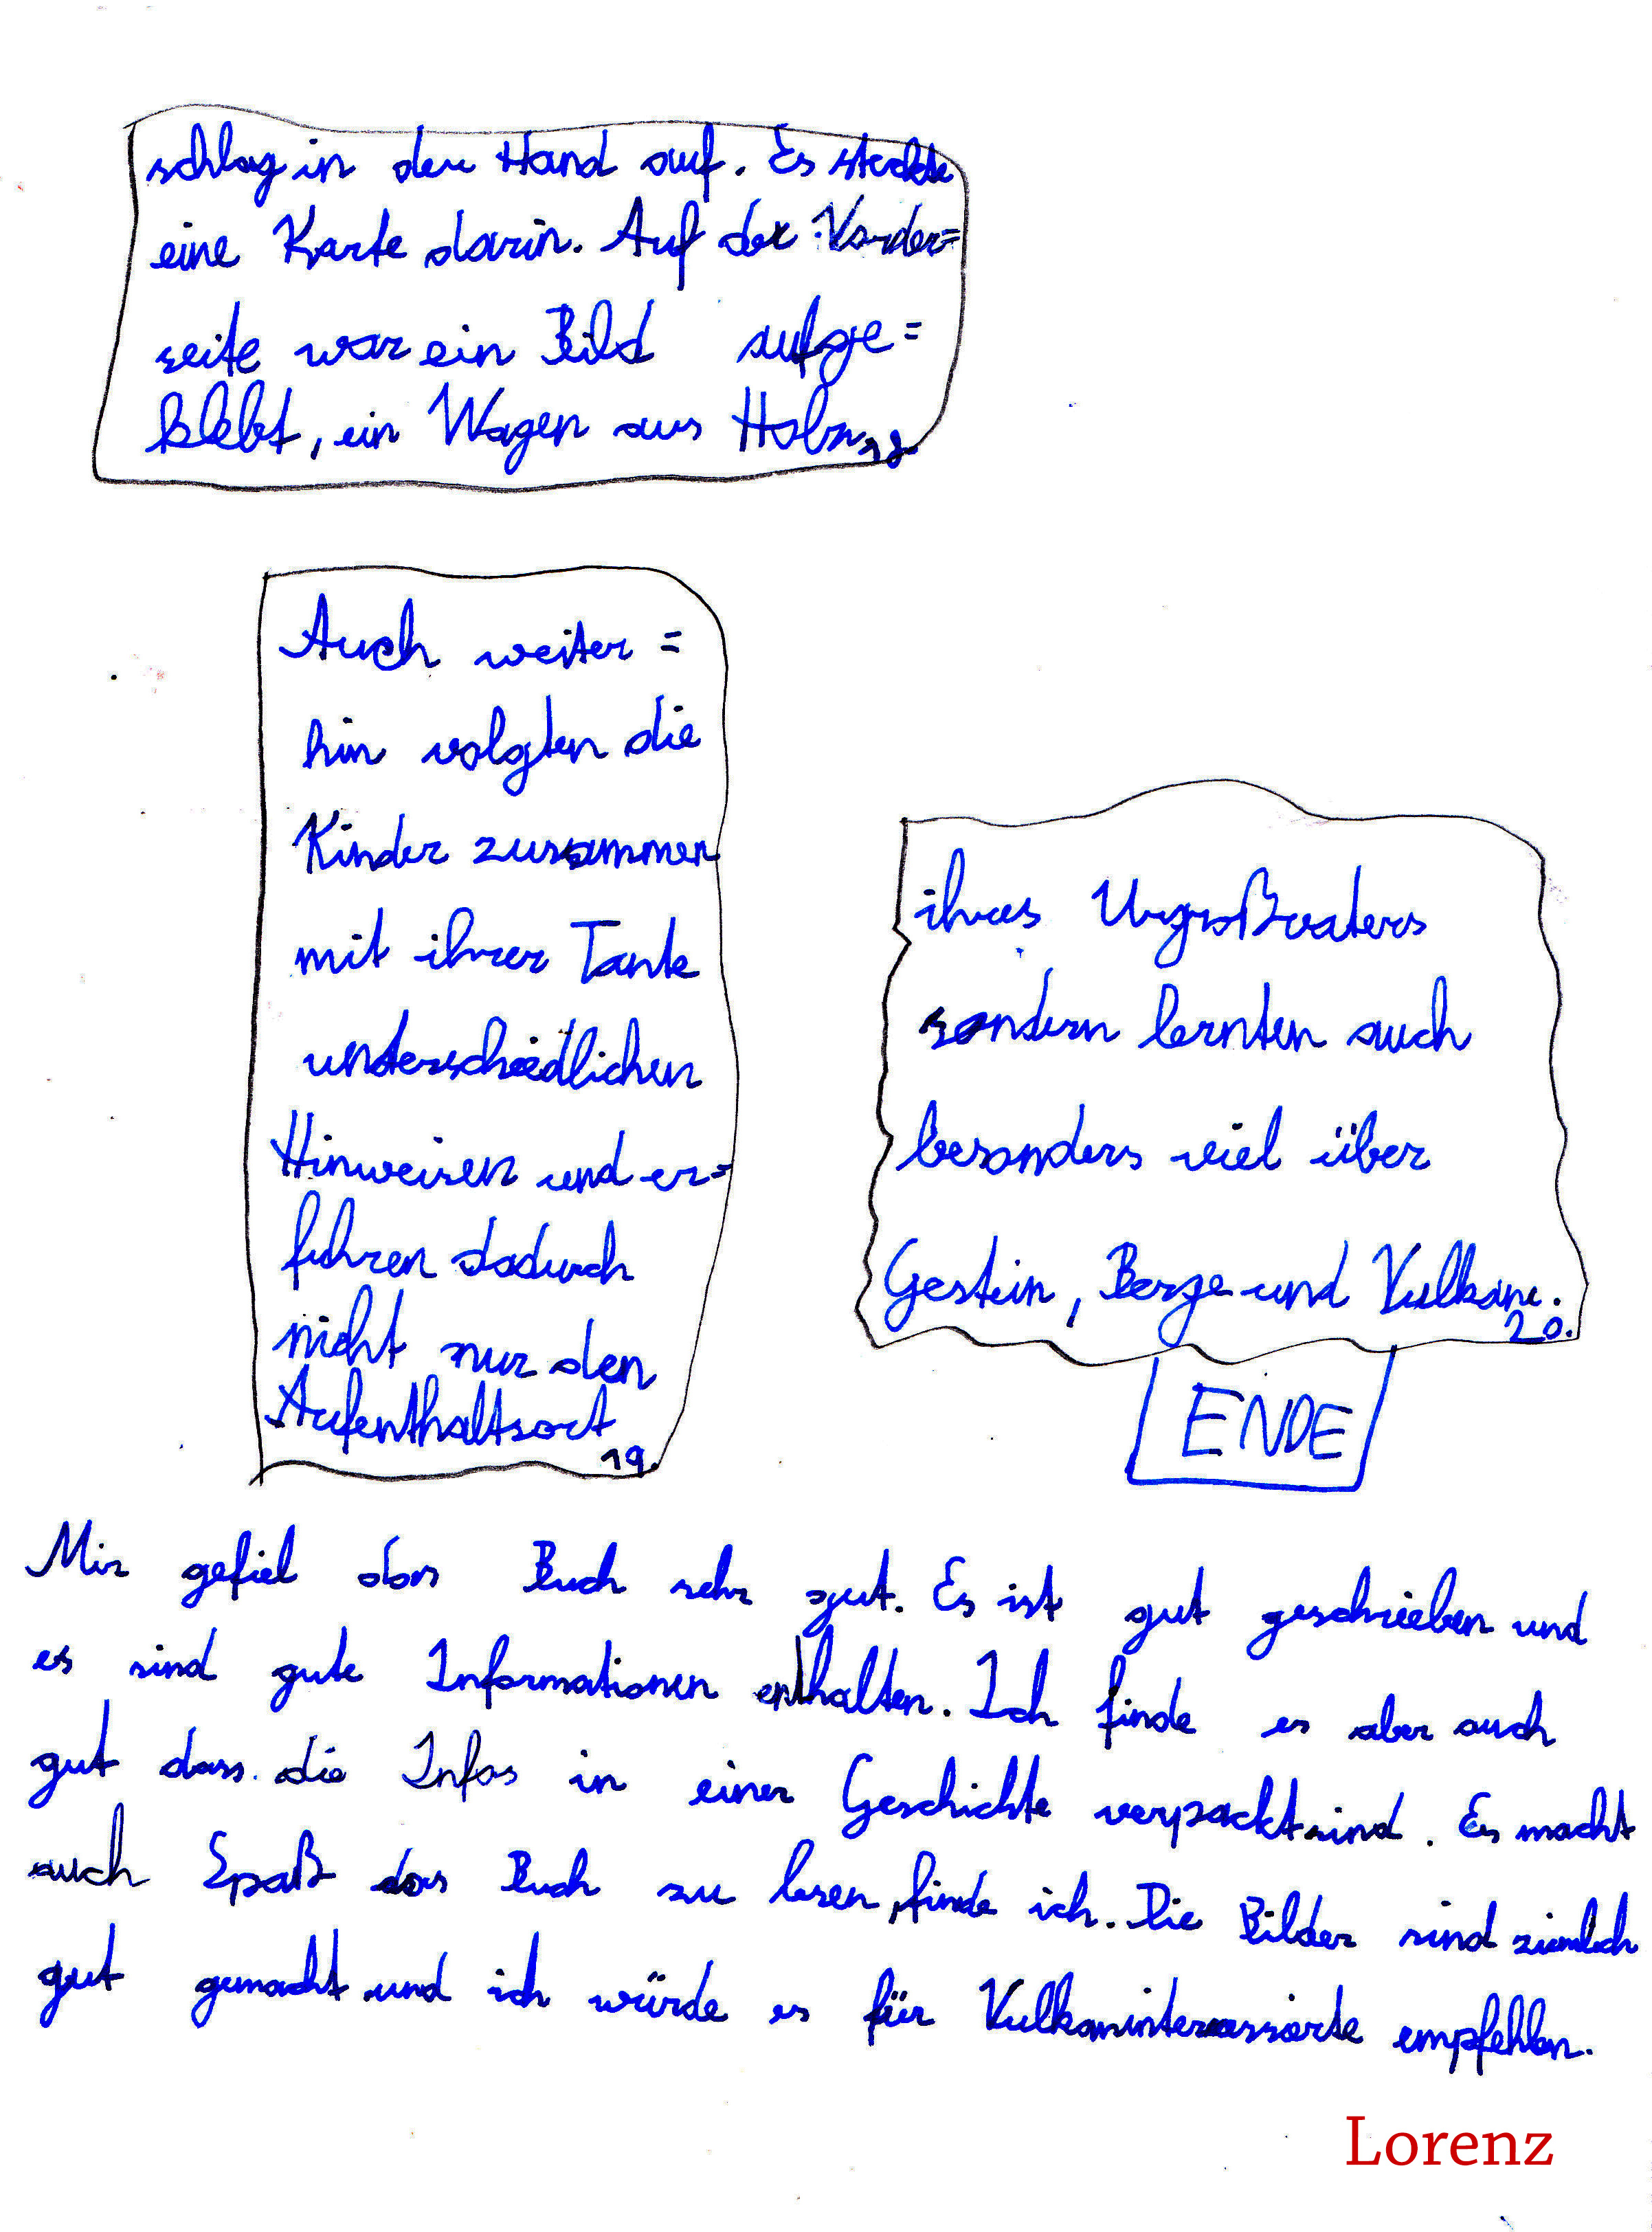 schlag in der Hand auf. Es steckte
eine Karte darin. Auf der Vorder=
seite war ein Bild aufge=
klebt, ein Wagen aus Holz 18.
Auch weiter=
hin volgten die
Kinder zusammen
mit ihrer Tante
unterschiedlichen
Hinweisen und er=
fuhren dadurch
nicht nur den
Aufenthaltsort
19.
ihres Urgroßvaters
sondern lernten auch
besonders viel über
Gestein, Berge und Vulkane.
20.
ENDE
Mir gefiel das Buch sehr gut. Es ist gut geschrieben und
es sind gute Informationen enthalten. Ich finde es aber auch
gut dass die Infos in einer Geschichte verpackt sind. Es macht
auch Spaß das Buch zu lesen, finde ich. Die Bilder sind ziemlich
gut gemacht und ich würde es für Vulkaninteressierte empfehlen.
Lorenz